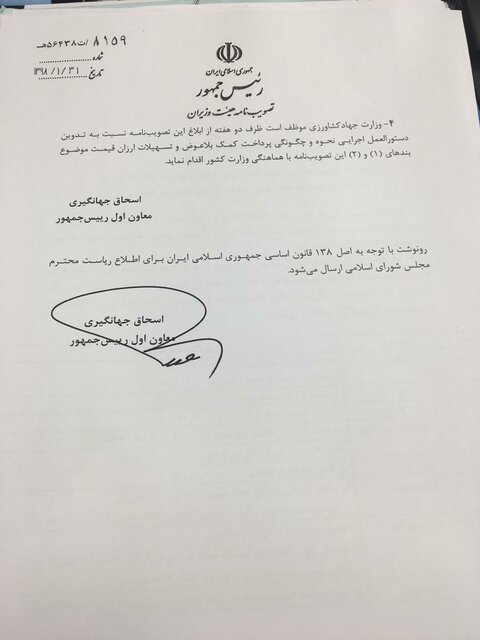 ۸۱۵۹/ت۵۶۴۳۸هـ
شماره
تاریخ ۱۳۹۸/۱/۳۱
جمهوری اسلامی ایران
رئیس جمهور
تصویب نامه هیئت وزیران
۴- وزارت جهادکشاورزی موظف است ظرف دو هفته از ابلاغ این تصویب‌نامه نسبت به تدوین
دستورالعمل اجرایی نحوه و چگونگی پرداخت کمک بلاعوض و تسهیلات ارزان قیمت موضوع
بندهای (۱) و (۲) این تصویب‌نامه با هماهنگی وزارت کشور اقدام نماید.
اسحاق جهانگیری
معاون اول رییس‌جمهور
رونوشت با توجه به اصل ۱۳۸ قانون اساسی جمهوری اسلامی ایران برای اطلاع ریاست محترم
مجلس شورای اسلامی ارسال می‌شود.
اسحاق جهانگیری
معاون اول رییس‌جمهور